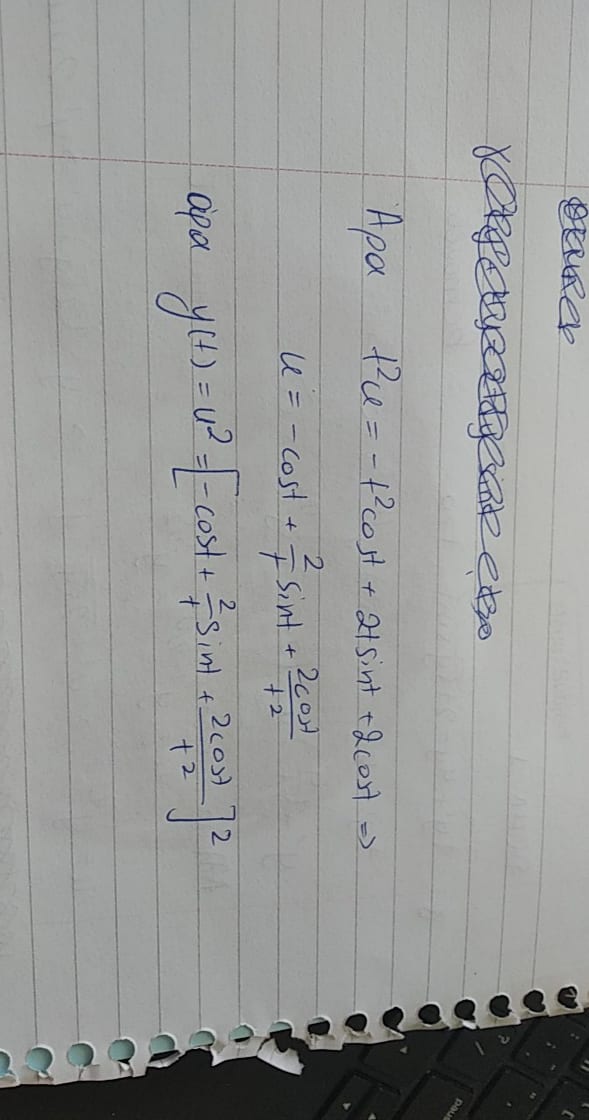 Άρα t²u = -t²cost + 2tsint + 2cost ⇒
u = -cost + 2/t sint + 2cost/t²
άρα y(t) = u² = [-cost + 2/t sint + 2cost/t²]²